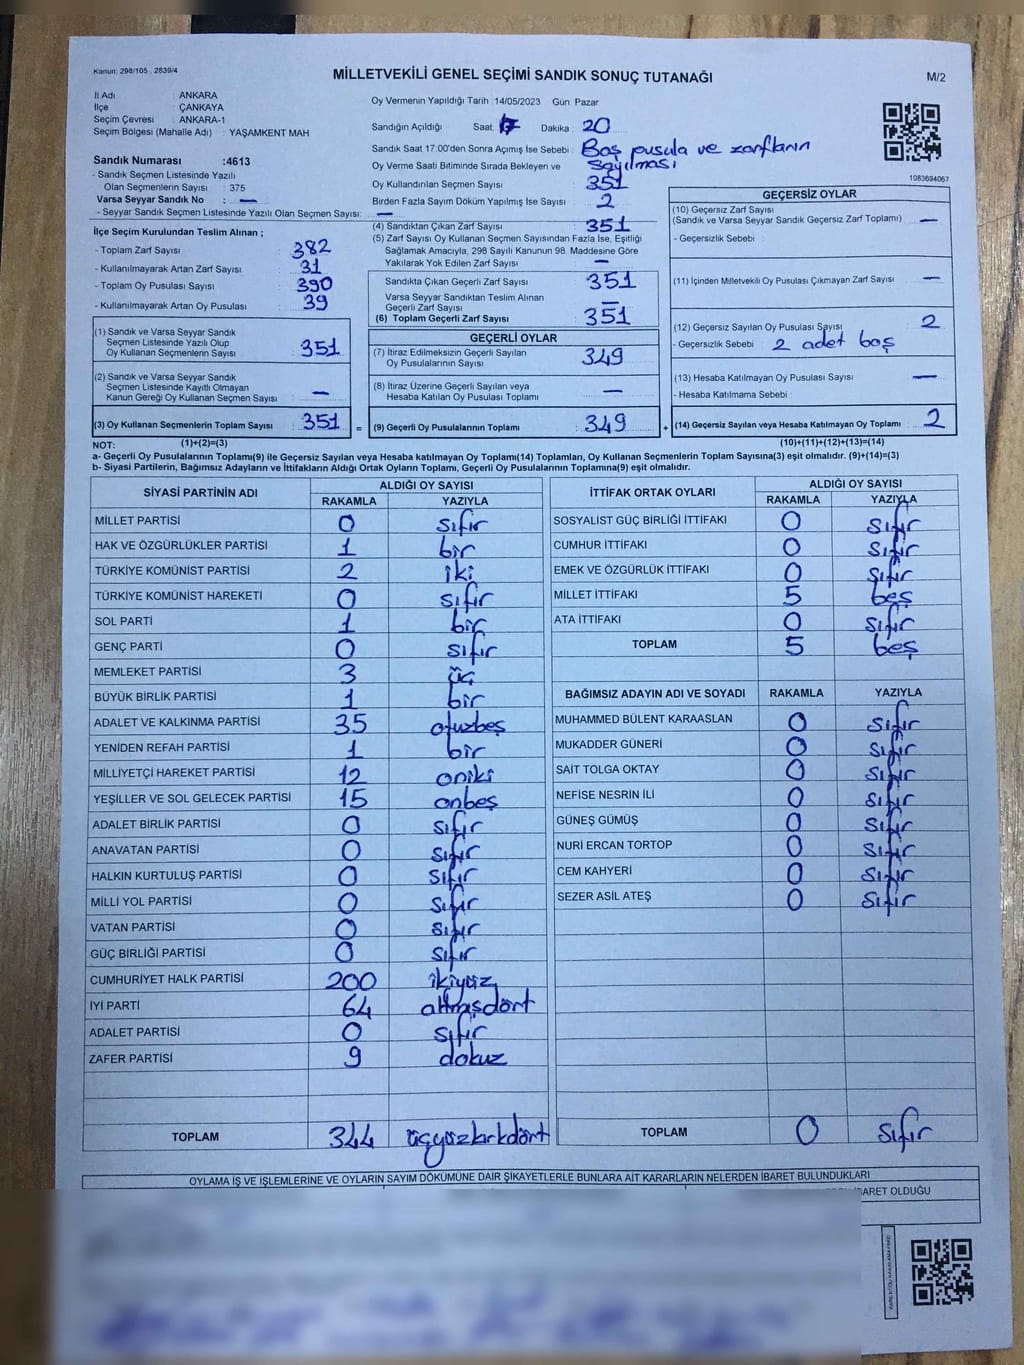 Kanun: 298/105 , 2839/4
MİLLETVEKİLİ GENEL SEÇİMİ SANDIK SONUÇ TUTANAĞI
M/2
İl Adı : ANKARA
İlçe : ÇANKAYA
Seçim Çevresi : ANKARA-1
Seçim Bölgesi (Mahalle Adı) : YAŞAMKENT MAH
Sandık Numarası :4613
- Sandık Seçmen Listesinde Yazılı
Olan Seçmenlerin Sayısı : 375
Varsa Seyyar Sandık No : —
- Seyyar Sandık Seçmen Listesinde Yazılı Olan Seçmen Sayısı: —
Oy Vermenin Yapıldığı Tarih : 14/05/2023 Gün : Pazar
Sandığın Açıldığı Saat : 17 Dakika : 20
Sandık Saat 17:00'den Sonra Açılmış İse Sebebi : Boş pusula ve zarfların
sayılması
Oy Verme Saati Bitiminde Sırada Bekleyen ve
Oy Kullandırılan Seçmen Sayısı : 351
Birden Fazla Sayım Döküm Yapılmış İse Sayısı : 2
1083694067
İlçe Seçim Kurulundan Teslim Alınan ;
- Toplam Zarf Sayısı : 382
- Kullanılmayarak Artan Zarf Sayısı : 31
- Toplam Oy Pusulası Sayısı : 390
- Kullanılmayarak Artan Oy Pusulası : 39
(1) Sandık ve Varsa Seyyar Sandık
Seçmen Listesinde Yazılı Olup
Oy Kullanan Seçmenlerin Sayısı : 351
(2) Sandık ve Varsa Seyyar Sandık
Seçmen Listesinde Kayıtlı Olmayan
Kanun Gereği Oy Kullanan Seçmen Sayısı : —
(3) Oy Kullanan Seçmenlerin Toplam Sayısı : 351 =
(4) Sandıktan Çıkan Zarf Sayısı : 351
(5) Zarf Sayısı Oy Kullanan Seçmen Sayısından Fazla İse, Eşitliği
Sağlamak Amacıyla, 298 Sayılı Kanunun 98. Maddesine Göre
Yakılarak Yok Edilen Zarf Sayısı : —
Sandıkta Çıkan Geçerli Zarf Sayısı : 351
Varsa Seyyar Sandıktan Teslim Alınan
Geçerli Zarf Sayısı : —
(6) Toplam Geçerli Zarf Sayısı : 351
GEÇERLİ OYLAR
(7) İtiraz Edilmeksizin Geçerli Sayılan
Oy Pusulalarının Sayısı : 349
(8) İtiraz Üzerine Geçerli Sayılan veya
Hesaba Katılan Oy Pusulası Toplamı : —
(9) Geçerli Oy Pusulalarının Toplamı : 349 +
GEÇERSİZ OYLAR
(10) Geçersiz Zarf Sayısı
(Sandık ve Varsa Seyyar Sandık Geçersiz Zarf Toplamı) : —
- Geçersizlik Sebebi :
(11) İçinden Milletvekili Oy Pusulası Çıkmayan Zarf Sayısı : —
(12) Geçersiz Sayılan Oy Pusulası Sayısı : 2
- Geçersizlik Sebebi : 2 adet boş
(13) Hesaba Katılmayan Oy Pusulası Sayısı : —
- Hesaba Katılmama Sebebi :
(14) Geçersiz Sayılan veya Hesaba Katılmayan Oy Toplamı : 2
NOT: (1)+(2)=(3)
(10)+(11)+(12)+(13)=(14)
a- Geçerli Oy Pusulalarının Toplamı(9) ile Geçersiz Sayılan veya Hesaba katılmayan Oy Toplamı(14) Toplamları, Oy Kullanan Seçmenlerin Toplam Sayısına(3) eşit olmalıdır. (9)+(14)=(3)
b- Siyasi Partilerin, Bağımsız Adayların ve İttifakların Aldığı Ortak Oyların Toplamı, Geçerli Oy Pusulalarının Toplamına(9) eşit olmalıdır.
SİYASİ PARTİNİN ADI ALDIĞI OY SAYISI
RAKAMLA YAZIYLA
MİLLET PARTİSİ 0 sıfır
HAK VE ÖZGÜRLÜKLER PARTİSİ 1 bir
TÜRKİYE KOMÜNİST PARTİSİ 2 iki
TÜRKİYE KOMÜNİST HAREKETİ 0 sıfır
SOL PARTİ 1 bir
GENÇ PARTİ 0 sıfır
MEMLEKET PARTİSİ 3 üç
BÜYÜK BİRLİK PARTİSİ 1 bir
ADALET VE KALKINMA PARTİSİ 35 otuzbeş
YENİDEN REFAH PARTİSİ 1 bir
MİLLİYETÇİ HAREKET PARTİSİ 12 oniki
YEŞİLLER VE SOL GELECEK PARTİSİ 15 onbeş
ADALET BİRLİK PARTİSİ 0 sıfır
ANAVATAN PARTİSİ 0 sıfır
HALKIN KURTULUŞ PARTİSİ 0 sıfır
MİLLİ YOL PARTİSİ 0 sıfır
VATAN PARTİSİ 0 sıfır
GÜÇ BİRLİĞİ PARTİSİ 0 sıfır
CUMHURİYET HALK PARTİSİ 200 ikiyüz
İYİ PARTİ 64 altmışdört
ADALET PARTİSİ 0 sıfır
ZAFER PARTİSİ 9 dokuz
TOPLAM 344 üçyüzkırkdört
İTTİFAK ORTAK OYLARI ALDIĞI OY SAYISI
RAKAMLA YAZIYLA
SOSYALIST GÜÇ BİRLİĞİ İTTİFAKI 0 sıfır
CUMHUR İTTİFAKI 0 sıfır
EMEK VE ÖZGÜRLÜK İTTİFAKI 0 sıfır
MİLLET İTTİFAKI 5 beş
ATA İTTİFAKI 0 sıfır
TOPLAM 5 beş
BAĞIMSIZ ADAYIN ADI VE SOYADI RAKAMLA YAZIYLA
MUHAMMED BÜLENT KARAASLAN 0 sıfır
MUKADDER GÜNERİ 0 sıfır
SAİT TOLGA OKTAY 0 sıfır
NEFİSE NESRİN İLİ 0 sıfır
GÜNEŞ GÜMÜŞ 0 sıfır
NURİ ERCAN TORTOP 0 sıfır
CEM KAHYERİ 0 sıfır
SEZER ASİL ATEŞ 0 sıfır
TOPLAM 0 sıfır
OYLAMA İŞ VE İŞLEMLERİNE VE OYLARIN SAYIM DÖKÜMÜNE DAİR ŞİKAYETLERLE BUNLARA AİT KARARLARIN NELERDEN İBARET BULUNDUKLARI
İBARET OLDUĞU